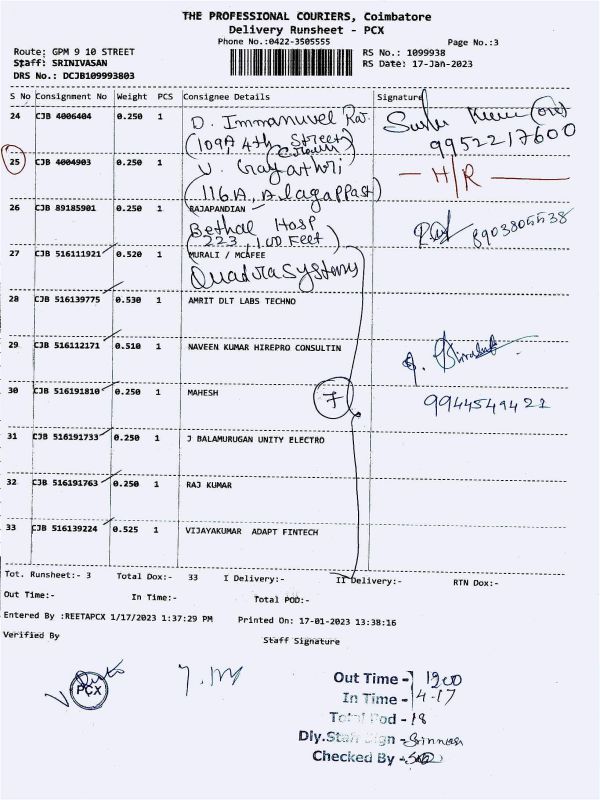 THE PROFESSIONAL COURIERS, Coimbatore
Delivery Runsheet - PCX
Phone No.:0422-3505555
Page No.:3
Route: GPM 9 10 STREET
Staff: SRINIVASAN
DRS No.: DCJB109993803
RS No.: 1099938
RS Date: 17-Jan-2023
S No Consignment No Weight PCS Consignee Details Signature
24 CJB 4006404 0.250 1 D. Immanuvel Raj
(109A, 4th Street
9952217600
25 CJB 4004903 0.250 1 V. Gayathri
(116A, Alagappast)
H/R
26 CJB 89185901 0.250 1 RAJAPANDIAN
Bethal Hosp
(223, 100 Feet)
8903805538
27 CJB 516111921 0.520 1 MURALI / MCAFEE
Quadrasystems
28 CJB 516139775 0.530 1 AMRIT DLT LABS TECHNO
29 CJB 516112171 0.510 1 NAVEEN KUMAR HIREPRO CONSULTIN
30 CJB 516191810 0.250 1 MAHESH
7
9944549421
31 CJB 516191733 0.250 1 J BALAMURUGAN UNITY ELECTRO
32 CJB 516191763 0.250 1 RAJ KUMAR
33 CJB 516139224 0.525 1 VIJAYAKUMAR ADAPT FINTECH
Tot. Runsheet:- 3 Total Dox:- 33 I Delivery:- II Delivery:- RTN Dox:-
Out Time:- In Time:- Total POD:-
Entered By :REETAPCX 1/17/2023 1:37:29 PM Printed On: 17-01-2023 13:38:16
Verified By Staff Signature
PCX
Out Time - 1900
In Time - 14-17
Total Pod - 18
Dly.Staff Sign -
Checked By -